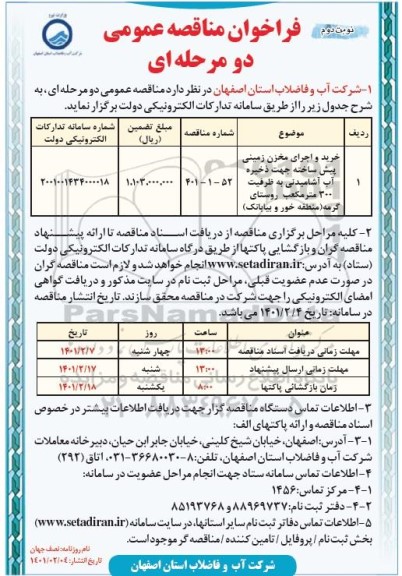 نوبت دوم
فراخوان مناقصه عمومی
دو مرحله ای
شرکت آب و فاضلاب استان اصفهان
۱-شرکت آب و فاضلاب استان اصفهان در نظر دارد مناقصه عمومی دو مرحله ای، به
شرح جدول زیر را از طریق سامانه تدارکات الکترونیکی دولت برگزار نماید.
ردیف موضوع شماره مناقصه مبلغ تضمین (ریال) شماره سامانه تدارکات الکترونیکی دولت
۱ خرید و اجرای مخزن زمینی پیش ساخته جهت ذخیره آب آشامیدنی به ظرفیت ۳۰۰ مترمکعب روستای گرمه(منطقه خور و بیابانک) ۴۰۱-۱-۵۲ ۱,۱۰۳,۰۰۰,۰۰۰ ۲۰۰۱۰۰۱۴۳۴۰۰۰۰۱۸
۲- کلیه مراحل برگزاری مناقصه از دریافت اسناد مناقصه تا ارائه پیشنهاد
مناقصه گران و بازگشایی پاکتها از طریق درگاه سامانه تدارکات الکترونیکی دولت
(ستاد) به آدرس: www.setadiran.ir انجام خواهد شد و لازم است مناقصه گران
در صورت عدم عضویت قبلی، مراحل ثبت نام در سایت مذکور و دریافت گواهی
امضای الکترونیکی را جهت شرکت در مناقصه محقق سازند. تاریخ انتشار مناقصه
در سامانه: تاریخ ۱۴۰۱/۲/۴ می باشد.
عنوان ساعت روز تاریخ
مهلت زمانی دریافت اسناد مناقصه ۱۴:۰۰ چهار شنبه ۱۴۰۱/۲/۷
مهلت زمانی ارسال پیشنهاد ۱۳:۰۰ شنبه ۱۴۰۱/۲/۱۷
زمان بازگشائی پاکتها ۸:۰۰ یکشنبه ۱۴۰۱/۲/۱۸
۳-اطلاعات تماس دستگاه مناقصه گزار جهت دریافت اطلاعات بیشتر در خصوص
اسناد مناقصه و ارائه پاکتهای الف:
۳-۱- آدرس: اصفهان، خیابان شیخ کلینی، خیابان جابر ابن حیان، دبیرخانه معاملات
شرکت آب و فاضلاب استان اصفهان، تلفن:۸-۳۶۶۸۰۰۳۰-۰۳۱، اتاق (۲۹۲)
۴-اطلاعات تماس سامانه ستاد جهت انجام مراحل عضویت در سامانه:
۴-۱- مرکز تماس: ۱۴۵۶
۴-۲- دفتر ثبت نام: ۸۸۹۶۹۷۳۷ و ۸۵۱۹۳۷۶۸
۵-اطلاعات تماس دفاتر ثبت نام سایر استانها، در سایت سامانه (www.setadiran.ir)
بخش ثبت نام / پروفایل / تامین کننده / مناقصه گر موجود است.
نام روزنامه: نصف جهان
تاریخ انتشار: ۱۴۰۱/۰۲/۰۴
شرکت آب و فاضلاب استان اصفهان